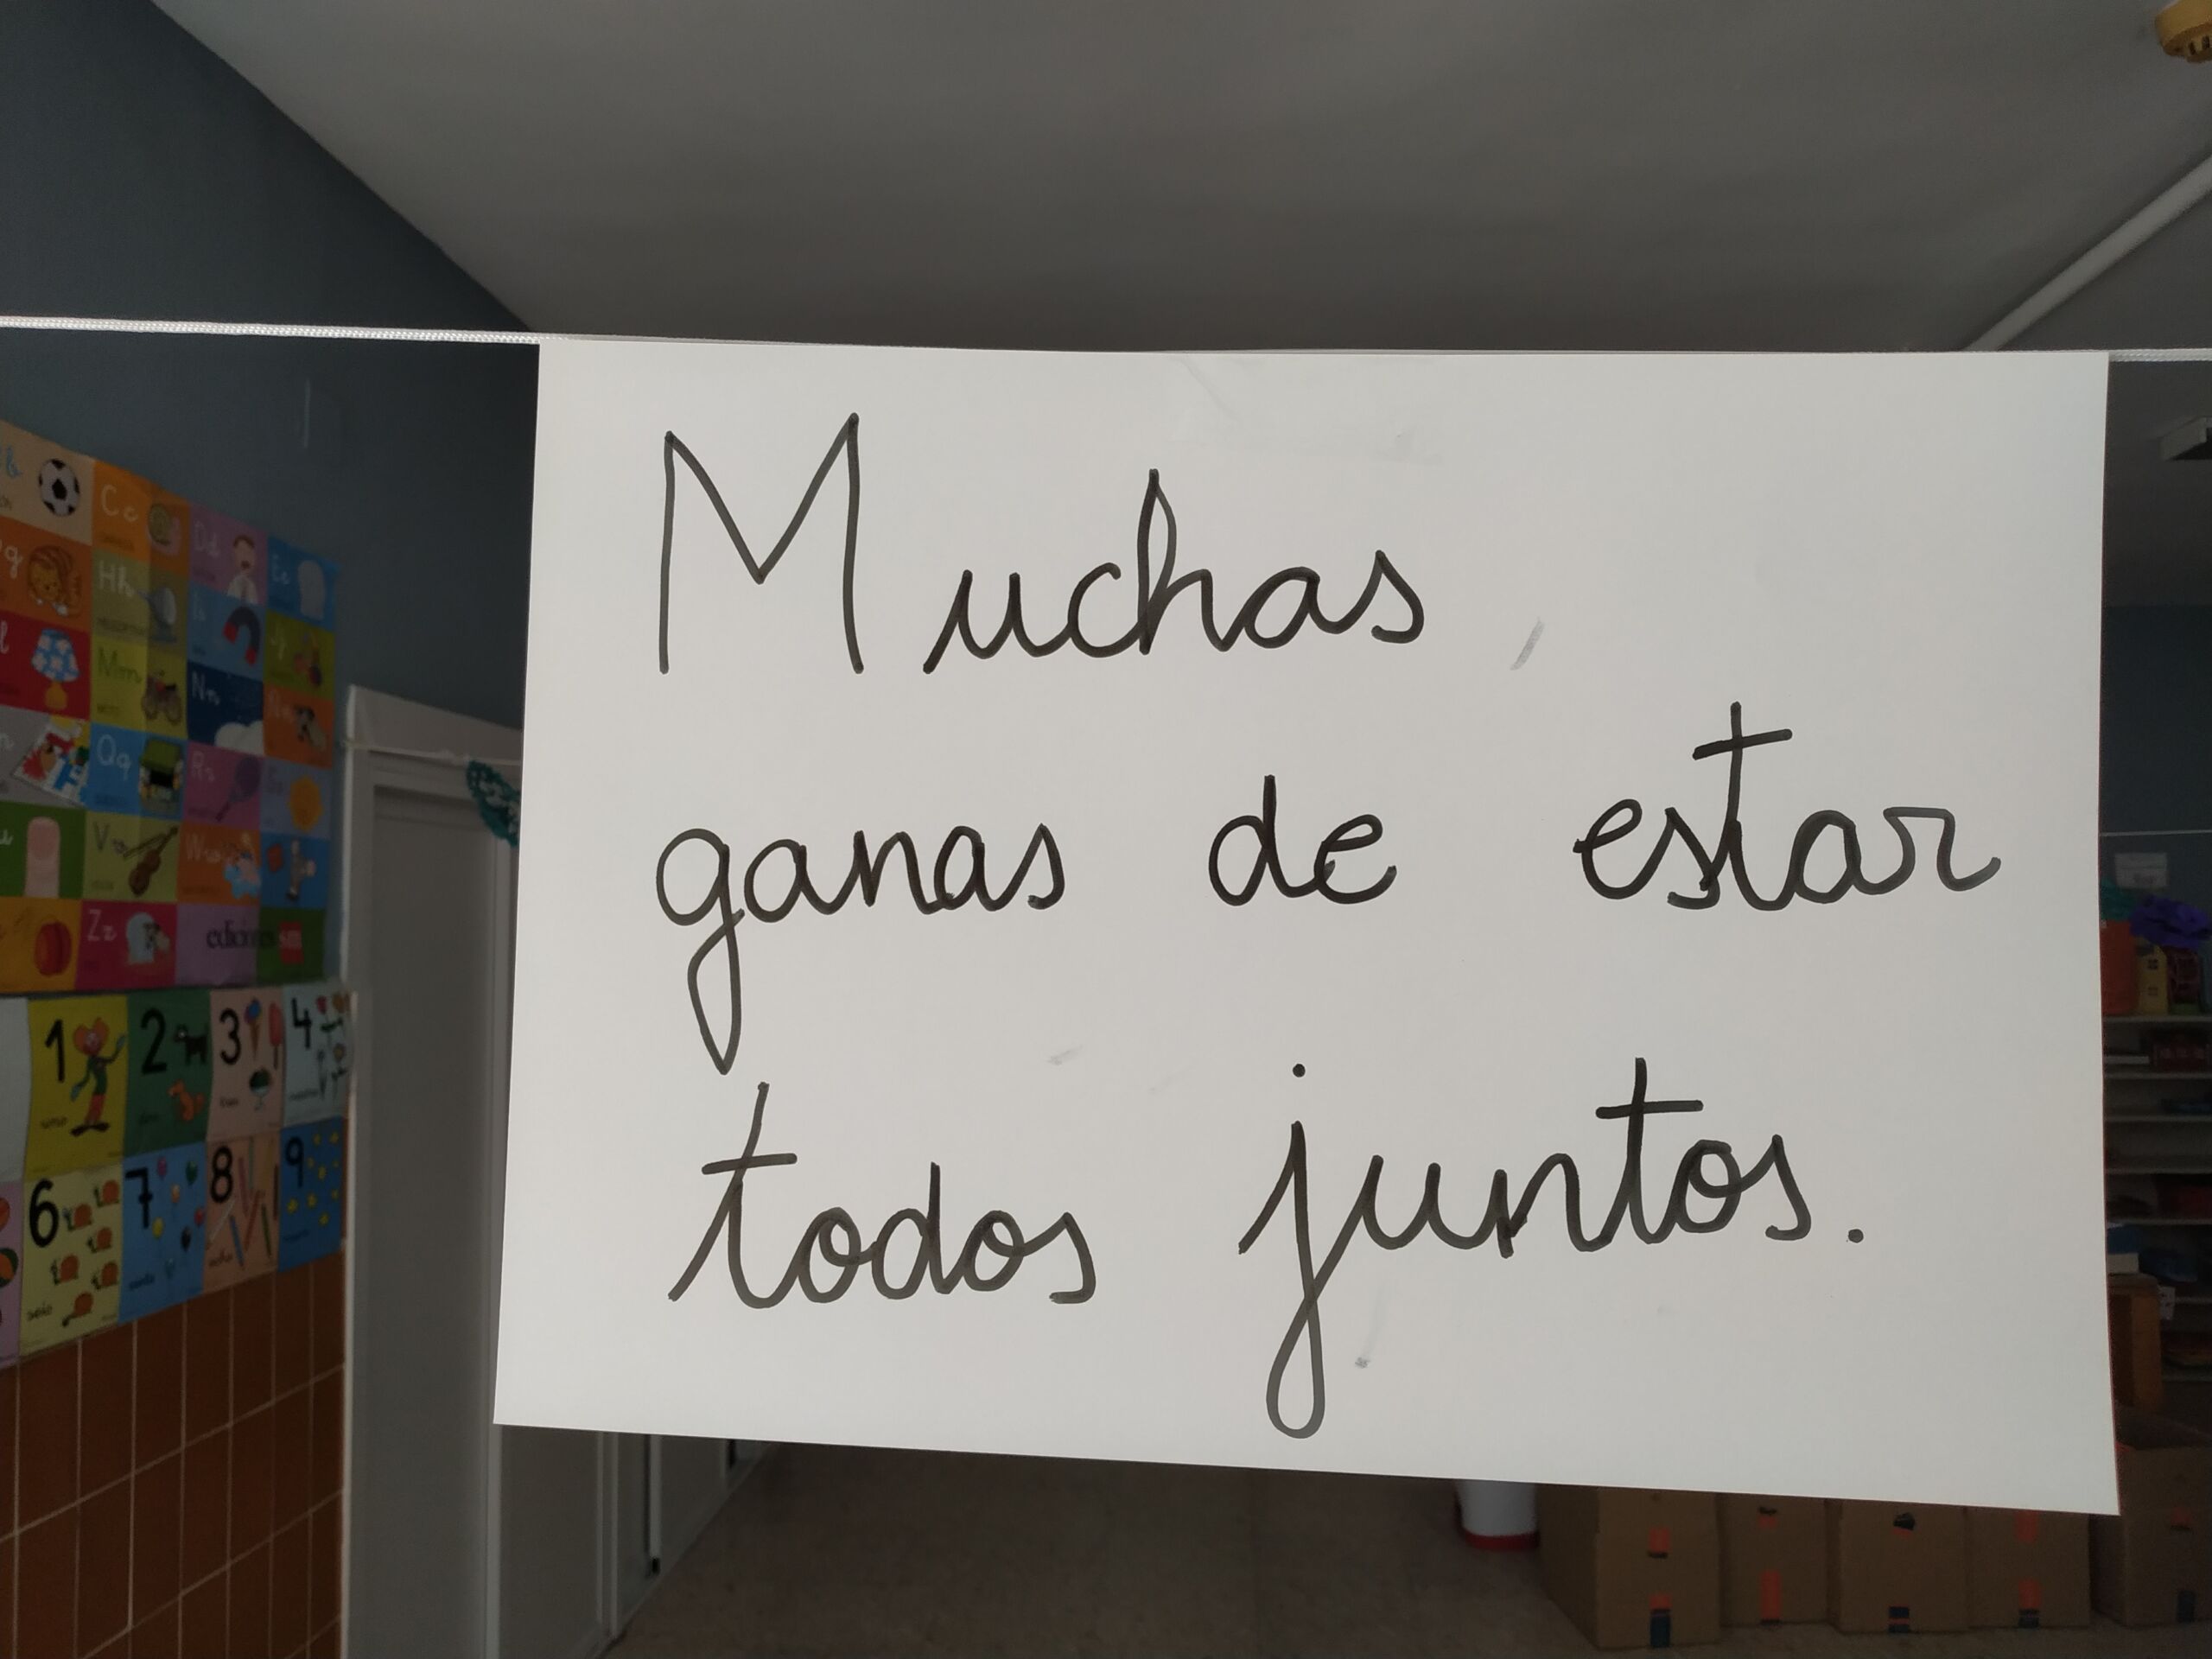 Muchas
ganas de estar
todos juntos.
C c
Dd
Ee
Hh
Mm
Nn
Qq
Rr
V v
Ww
Zz
ediciones sm
1 2 3 4
uno
6 7 8 9
seis
ocho